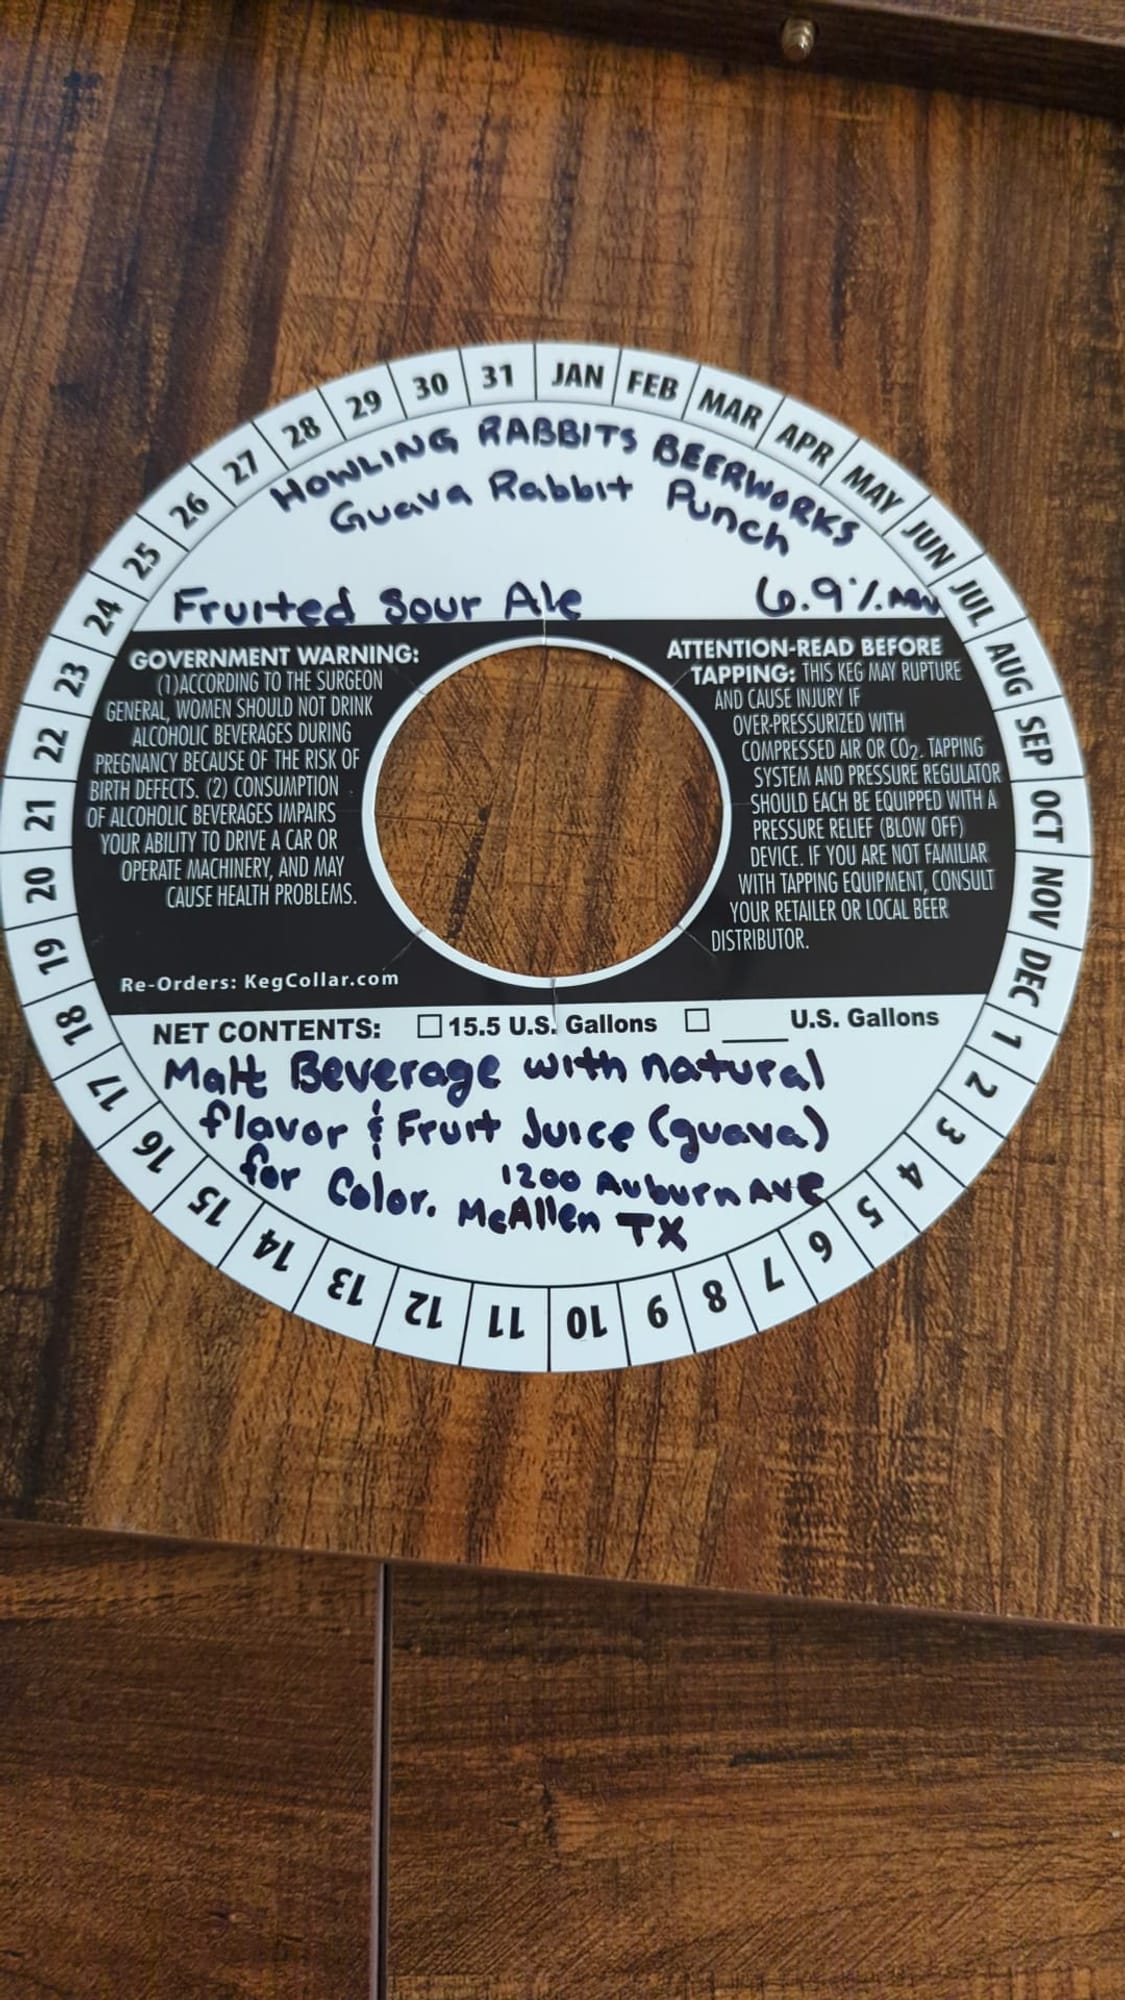 31 JAN FEB MAR APR MAY JUN JUL AUG SEP OCT NOV DEC
1 2 3 4 5 6 7 8 9 10 11 12 13 14 15 16 17 18 19 20 21 22 23 24 25 26 27 28 29 30
HOWLING RABBITS BEERWORKS
Guava Rabbit Punch
Fruited Sour Ale 6.9%
GOVERNMENT WARNING:
(1)ACCORDING TO THE SURGEON
GENERAL, WOMEN SHOULD NOT DRINK
ALCOHOLIC BEVERAGES DURING
PREGNANCY BECAUSE OF THE RISK OF
BIRTH DEFECTS. (2) CONSUMPTION
OF ALCOHOLIC BEVERAGES IMPAIRS
YOUR ABILITY TO DRIVE A CAR OR
OPERATE MACHINERY, AND MAY
CAUSE HEALTH PROBLEMS.
Re-Orders: KegCollar.com
ATTENTION-READ BEFORE
TAPPING: THIS KEG MAY RUPTURE
AND CAUSE INJURY IF
OVER-PRESSURIZED WITH
COMPRESSED AIR OR CO2. TAPPING
SYSTEM AND PRESSURE REGULATOR
SHOULD EACH BE EQUIPPED WITH A
PRESSURE RELIEF (BLOW OFF)
DEVICE. IF YOU ARE NOT FAMILIAR
WITH TAPPING EQUIPMENT, CONSULT
YOUR RETAILER OR LOCAL BEER
DISTRIBUTOR.
NET CONTENTS: 15.5 U.S. Gallons ____ U.S. Gallons
Malt Beverage with natural
flavor & Fruit Juice (guava)
for Color.
1200 Auburn Ave
McAllen TX